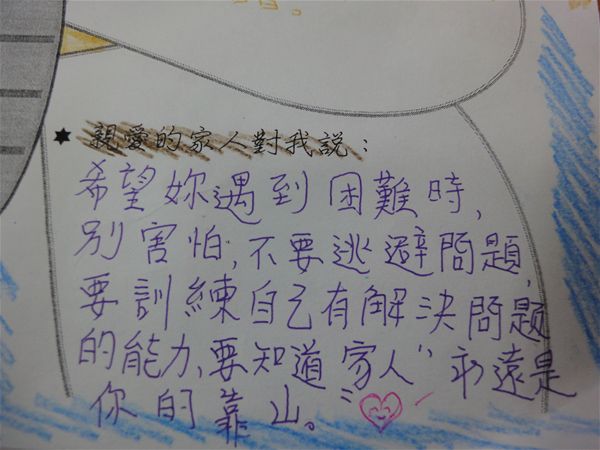 ★ 親愛的家人對我說：
希望妳遇到困難時,
別害怕,不要逃避問題,
要訓練自己有解決問題
的能力,要知道"家人"永遠是
你的靠山。